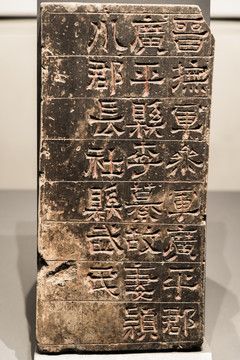 晉撫軍參軍廣平郡
廣平縣李纂故妻潁
川郡長社縣武氏